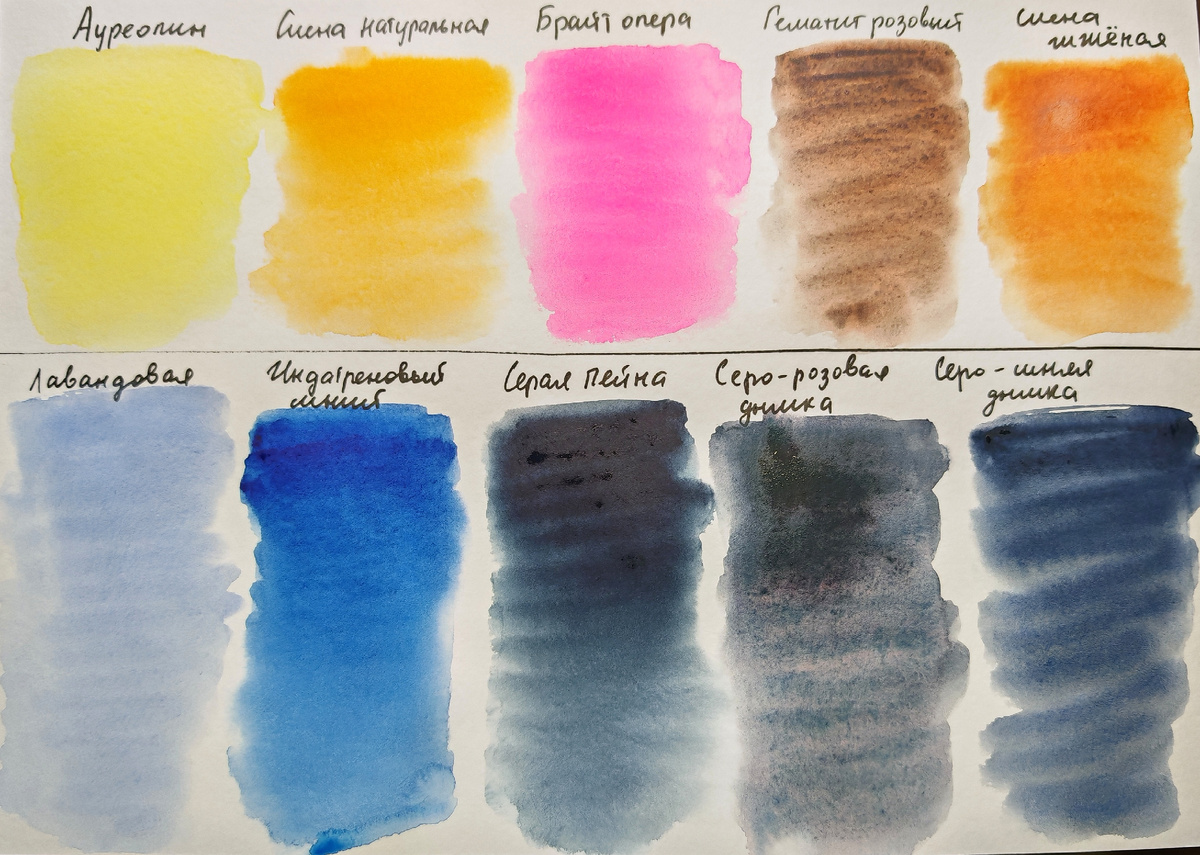 Ауреолин
Сиена натуральная
Брайт опера
Гематит розовый
Сиена
жжёная
Лавандовая
Индатреновый
синий
Серая Пейна
Серо-розовая
дымка
Серо-синяя
дымка